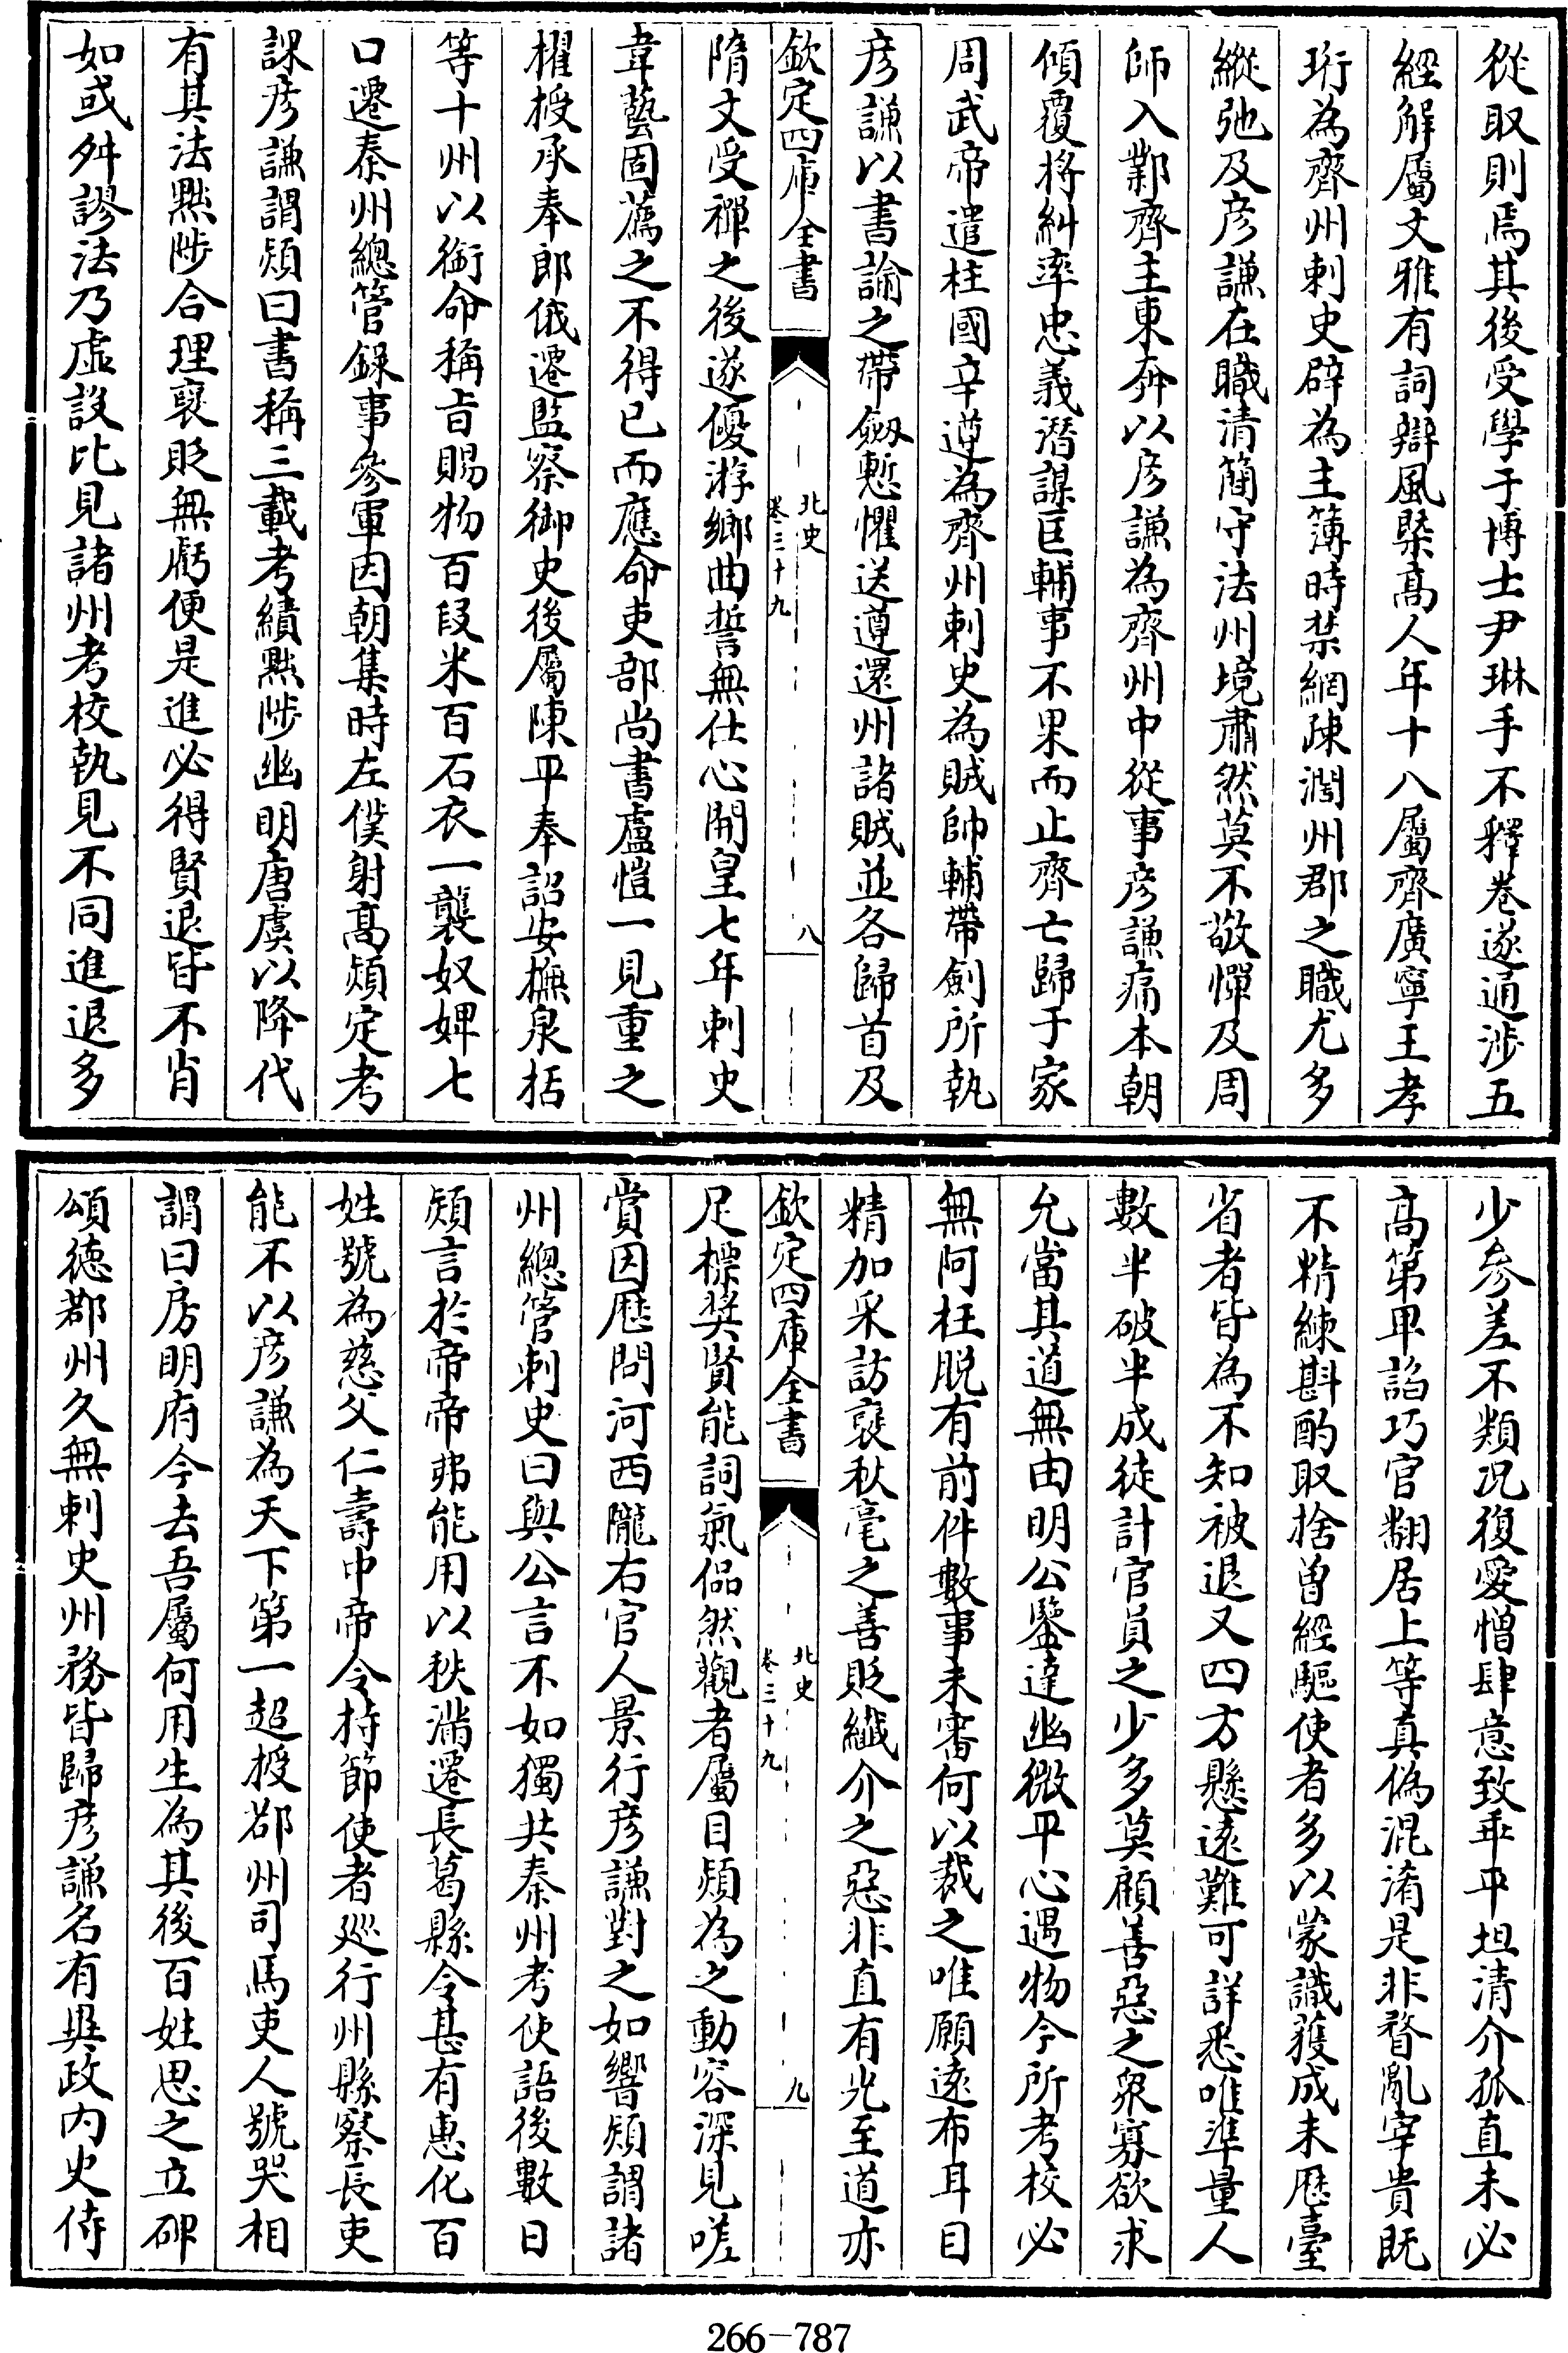 從取則焉其後受學于博士尹琳手不釋卷遂通涉五
經解屬文雅有詞辯風槩髙人年十八屬齊廣寧王孝
珩為齊州刺史辟為主簿時禁網疎濶州郡之職尤多
縱弛及彦謙在職清簡守法州境肅然莫不敬憚及周
師入鄴齊主東奔以彦謙為齊州中從事彦謙痛本朝
傾覆將糾率忠義潛謀匡輔事不果而止齊亡歸于家
周武帝遣柱國辛遵為齊州刺史為賊帥輔帶劍所執
彦謙以書諭之帶劔慙懼送遵還州諸賊並各歸首及
欽定四庫全書
北史
卷三十九
八
隋文受禪之後遂優游鄉曲誓無仕心開皇七年刺史
韋藝固薦之不得已而應命吏部尚書盧愷一見重之
擢授承奉郎俄遷監察御史後屬陳平奉詔安撫泉括
等十州以銜命稱旨賜物百段米百石衣一襲奴婢七
口遷秦州總管錄事參軍因朝集時左僕射髙熲定考
課彦謙謂熲曰書稱三載考績黜陟幽明唐虞以降代
有其法黜陟合理襃貶無虧便是進必得賢退皆不肖
如或舛謬法乃虛設比見諸州考校執見不同進退多
少參差不類况復愛憎肆意致乖平坦清介孤直未必
髙第卑諂巧官翻居上等真偽混淆是非瞀亂宰貴既
不精練斟酌取捨曽經驅使者多以蒙識獲成未厯臺
省者皆為不知被退又四方懸遠難可詳悉唯準量人
數半破半成徒計官員之少多莫顧善惡之衆寡欲求
允當其道無由明公鑒達幽微平心遇物今所考校必
無阿枉脱有前件數事未審何以裁之唯願遠布耳目
精加采訪襃秋毫之善貶纎介之惡非直有光至道亦
欽定四庫全書
北史
卷三十九
九
足標奨賢能詞氣侃然觀者屬目熲為之動容深見嗟
賞因厯問河西隴右官人景行彦謙對之如響熲謂諸
州總管刺史曰與公言不如獨共秦州考使語後數日
熲言於帝帝弗能用以秩滿遷長葛縣令甚有惠化百
姓號為慈父仁壽中帝令持節使者廵行州縣察長吏
能不以彦謙為天下第一超授鄀州司馬吏人號哭相
謂曰房明府今去吾屬何用生為其後百姓思之立碑
頌徳鄀州久無刺史州務皆歸彦謙名有異政内史侍
266-787